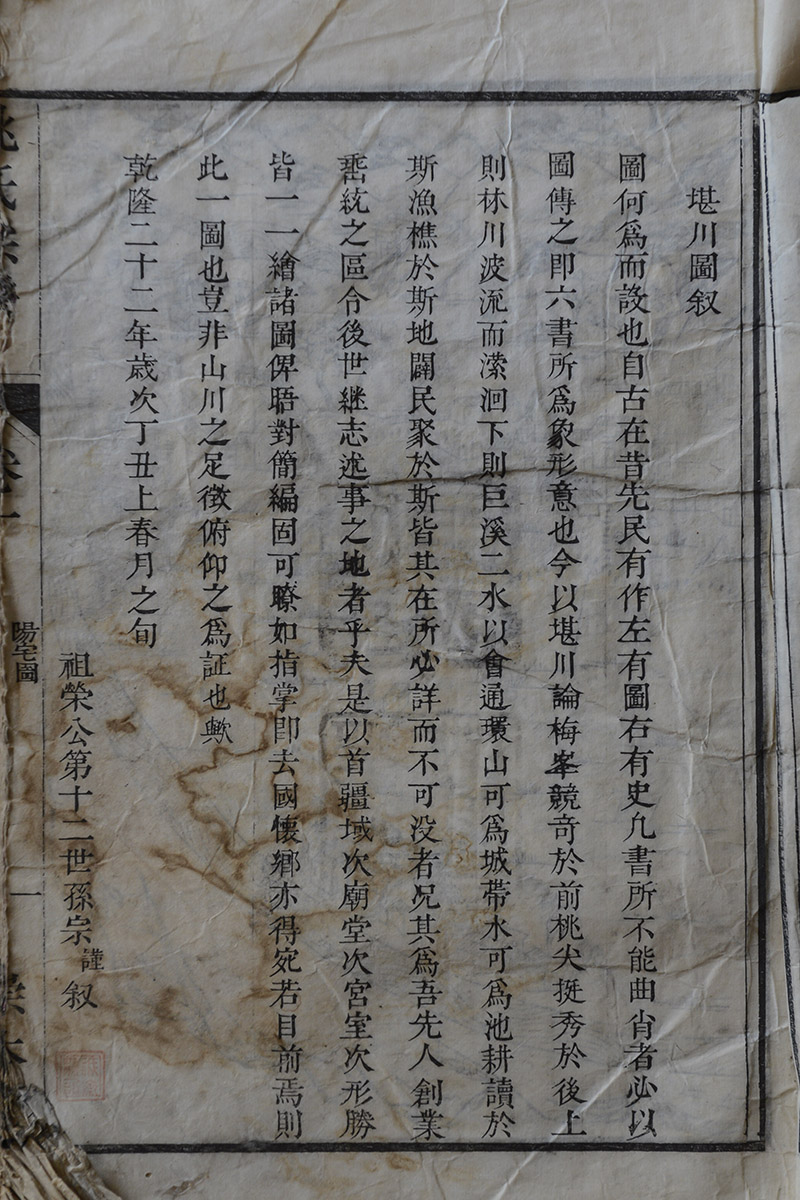 堪川圖叙
圖何爲而設也自古在昔先民有作左有圖右有史凡書所不能曲肖者必以
圖傳之即六書所爲象形意也今以堪川論梅峯競奇於前桃尖挺秀於後上
則林川波流而瀠洄下則巨溪二水以會通環山可爲城帶水可爲池耕讀於
斯漁樵於斯地闢民聚於斯皆其在所必詳而不可没者况其爲吾先人創業
垂統之區令後世継志述事之地者乎夫是以首疆域次廟堂次宮室次形勝
皆一一繪諸圖俾晤對簡編固可瞭如指掌即去國懷鄉亦得宛若目前焉則
此一圖也豈非山川之足徵俯仰之爲証也歟
乾隆二十二年歲次丁丑上春月之旬
祖榮公第十二世孫宗謹叙
陽宅圖
一